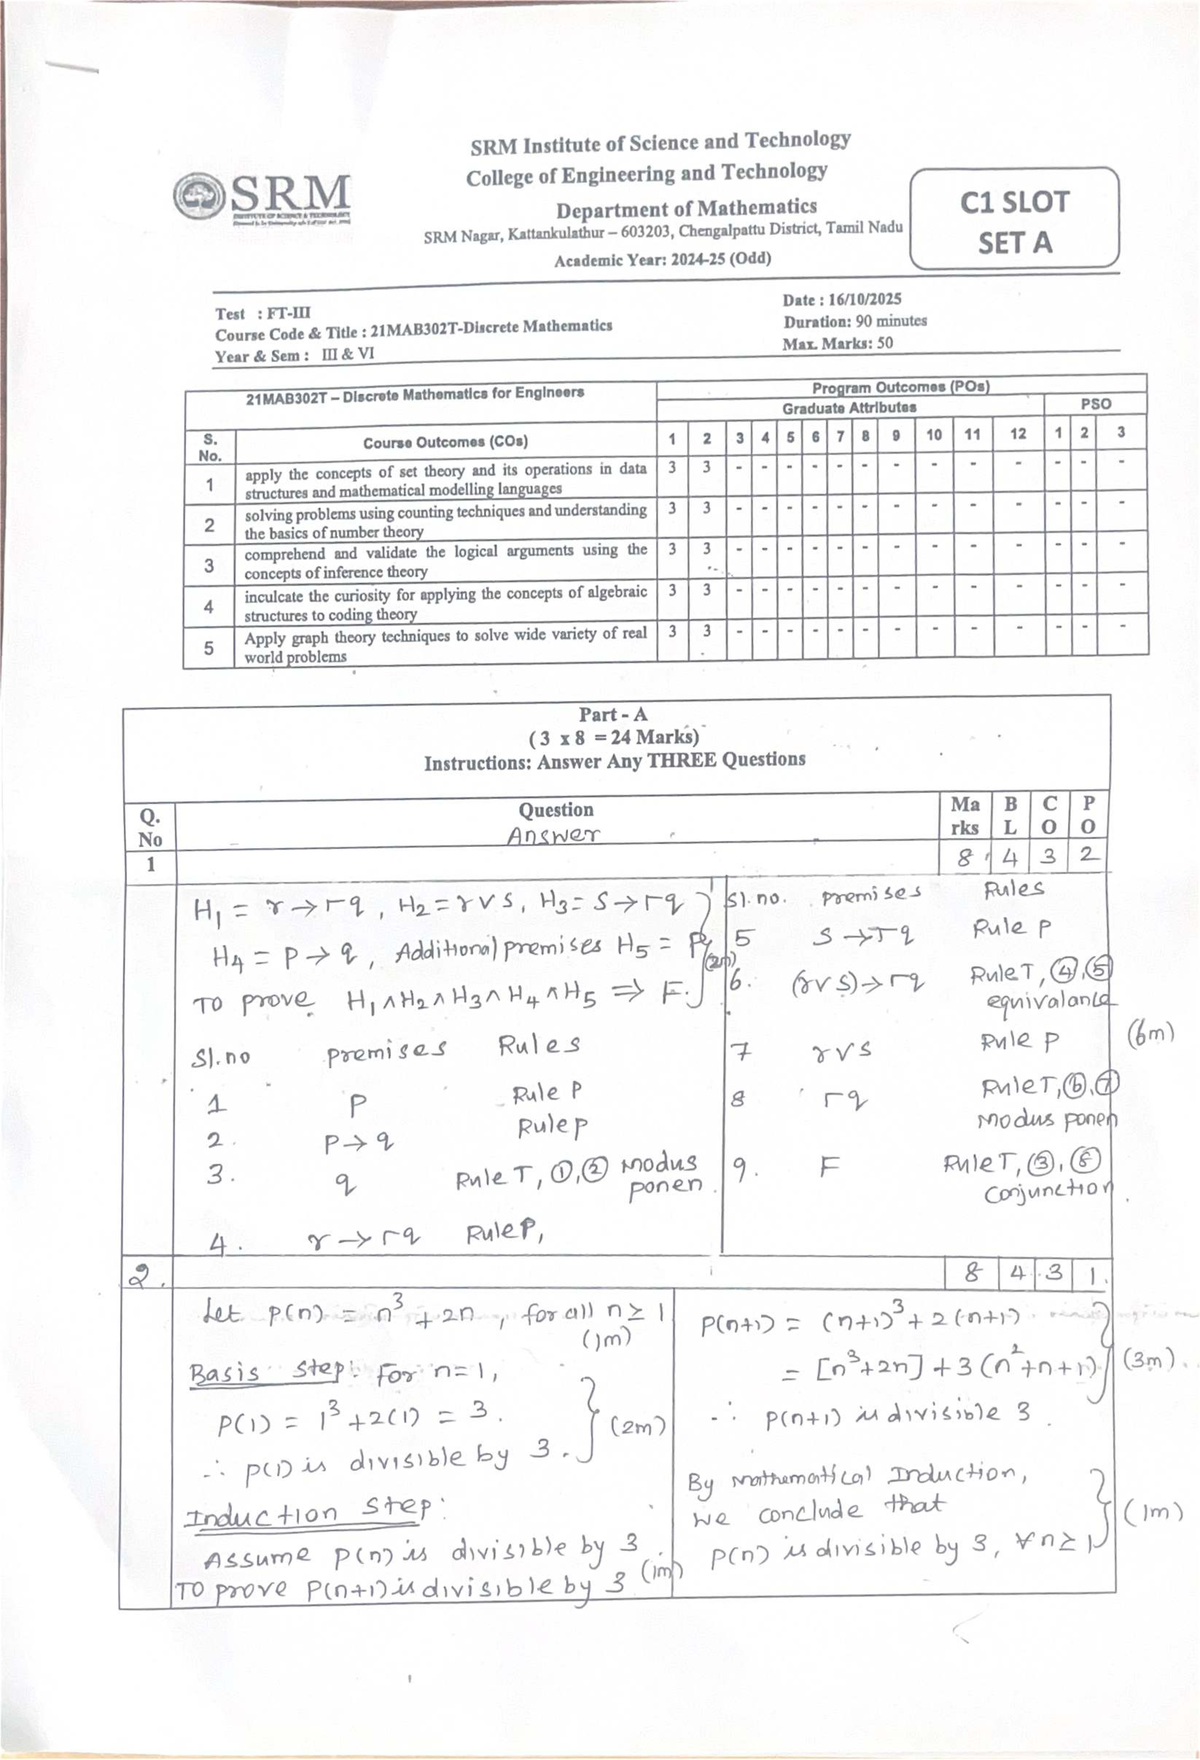 SRM Institute of Science and Technology
College of Engineering and Technology
Department of Mathematics
SRM Nagar, Kattankulathur – 603203, Chengalpattu District, Tamil Nadu
Academic Year: 2024-25 (Odd)
SRM
INSTITUTE OF SCIENCE & TECHNOLOGY
C1 SLOT
SET A
Test : FT-III
Course Code & Title : 21MAB302T-Discrete Mathematics
Year & Sem : III & VI
Date : 16/10/2025
Duration: 90 minutes
Max. Marks: 50
21MAB302T – Discrete Mathematics for Engineers
Program Outcomes (POs)
Graduate Attributes PSO
S. No. Course Outcomes (COs) 1 2 3 4 5 6 7 8 9 10 11 12 1 2 3
1 apply the concepts of set theory and its operations in data 3 3 - - - - - - - - - - - - -
structures and mathematical modelling languages
2 solving problems using counting techniques and understanding 3 3 - - - - - - - - - - - - -
the basics of number theory
3 comprehend and validate the logical arguments using the 3 3 - - - - - - - - - - - - -
concepts of inference theory
4 inculcate the curiosity for applying the concepts of algebraic 3 3 - - - - - - - - - - - - -
structures to coding theory
5 Apply graph theory techniques to solve wide variety of real 3 3 - - - - - - - - - - - - -
world problems
Part - A
( 3 x 8 = 24 Marks)
Instructions: Answer Any THREE Questions
Q. No Question Ma rks B L C O P O
Answer
1 8 4 3 2
H₁ = r → ¬q, H₂ = r ∨ s, H₃ = s → ¬q
H₄ = P → q, Additional premises H₅ = P (2m)
To prove H₁ ∧ H₂ ∧ H₃ ∧ H₄ ∧ H₅ ⇒ F.
Sl.no premises Rules
1 P Rule P
2. P → q Rule P
3. q Rule T, ①,② modus
ponen.
4. r → ¬q Rule P,
Sl.no. premises Rules
5 s → ¬q Rule P
6. (r ∨ s) → ¬q Rule T, ④,⑤
equivalance
7 r ∨ s Rule P (6m)
8 ¬q Rule T, ⑥,⑦
Modus ponen
9. F Rule T, ③, ⑧
conjunction.
2. 8 4 3 1.
Let P(n) = n³ + 2n, for all n ≥ 1
(1m)
Basis Step: For n=1,
P(1) = 1³ + 2(1) = 3.
(2m)
∴ P(1) is divisible by 3.
Induction Step:
Assume P(n) is divisible by 3.
(1m)
To prove P(n+1) is divisible by 3
P(n+1) = (n+1)³ + 2(n+1)
= [n³+2n] + 3(n²+n+1) (3m)
∴ P(n+1) is divisible 3.
By Mathematical Induction,
we conclude that
(1m)
P(n) is divisible by 3, ∀ n ≥ 1